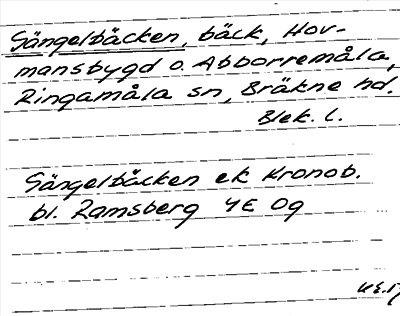 Sängelbäcken, bäck, Hov-
mansbygd o. Abborremåla,
Ringamåla sn, Bräkne hd.
Blek. l.
Sängelbäcken ek Kronob.
bl. Ramsberg 4E Og